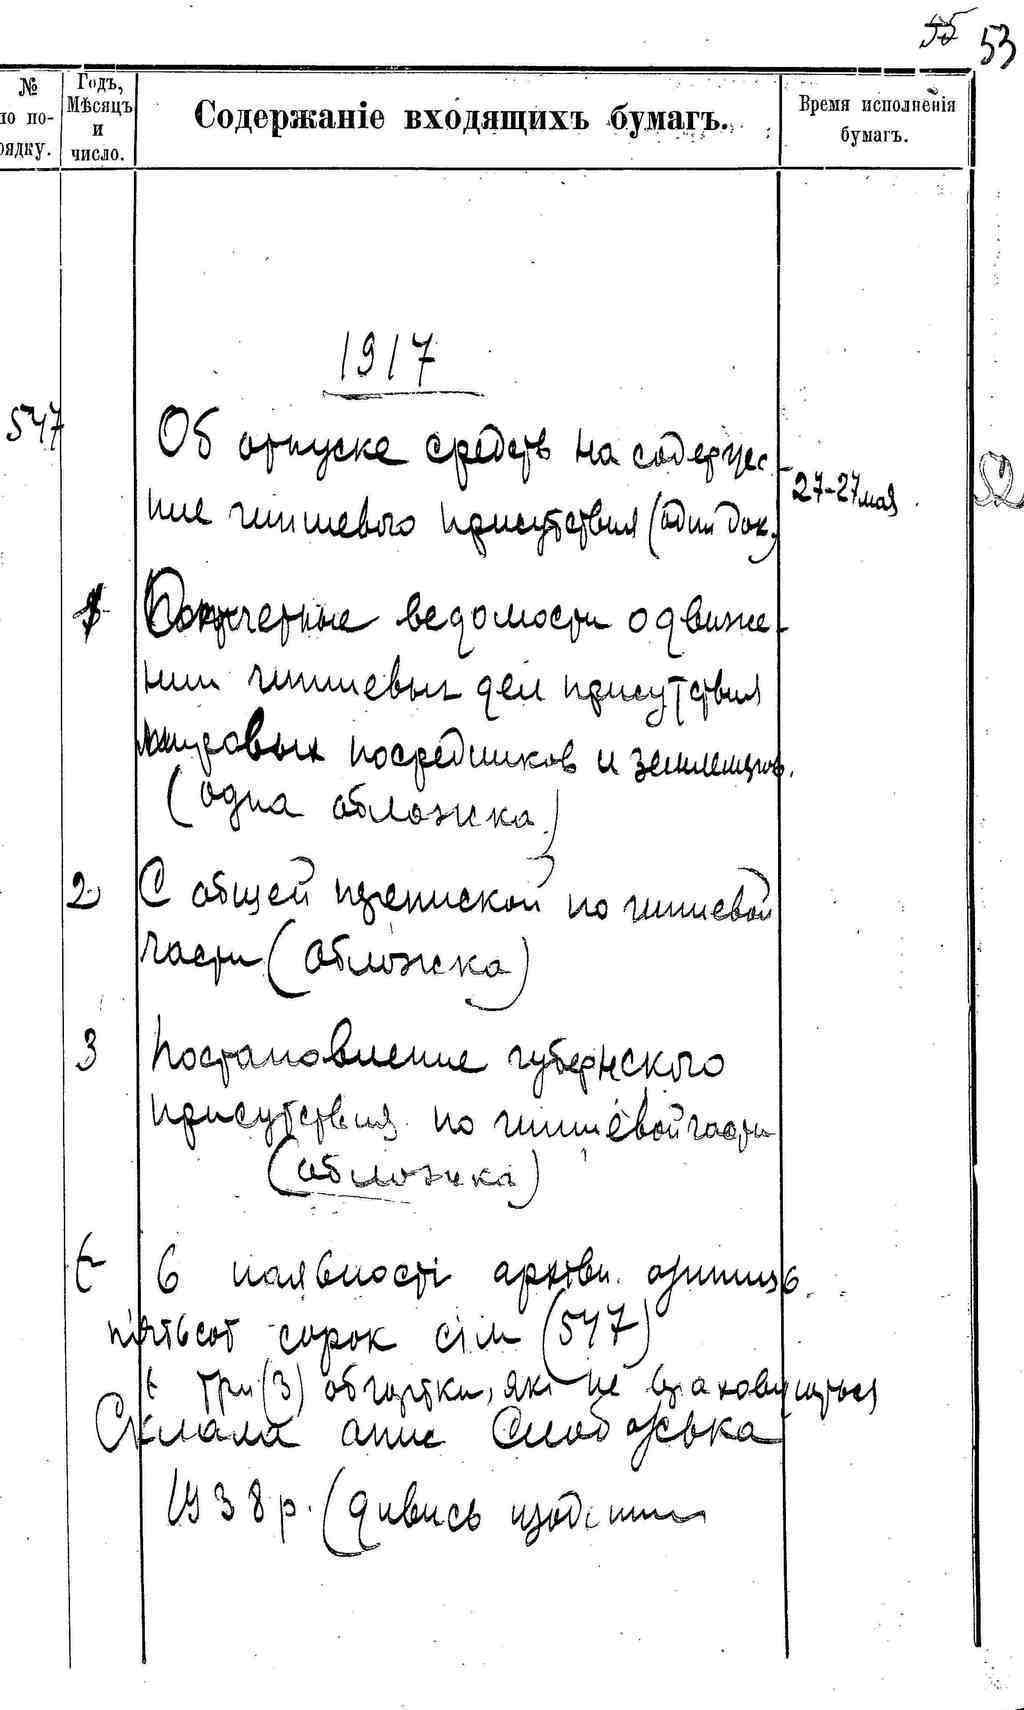 55 53
№ по порядку.
Годъ, Мѣсяцъ и число.
Содержаніе входящихъ бумагъ.
Время исполненія бумагъ.
1917
547
Об отпуске средств на содержа-
ние чиншевого присутствия (один док.)
27-27 мая
1
отчетные ведомости о движе-
нии чиншевых дел присутствия
мировых посредников и землемеров.
(одна обложка)
2
С общей перепиской по чиншевой
части (обложка)
3
Постановление губернского
присутствия по чиншевой части
(обложка)
Є в наявності архівн. одиниць
п'ятьсот сорок сім (547)
і три (3) обгортки, які не враховуються
Склала опис
1938 р. (дивись